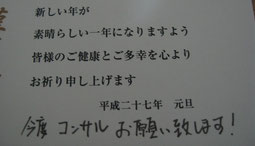 新しい年が
素晴らしい一年になりますよう
皆様のご健康とご多幸を心より
お祈り申し上げます
平成二十七年 元旦
今度 コンサル お願い致します!